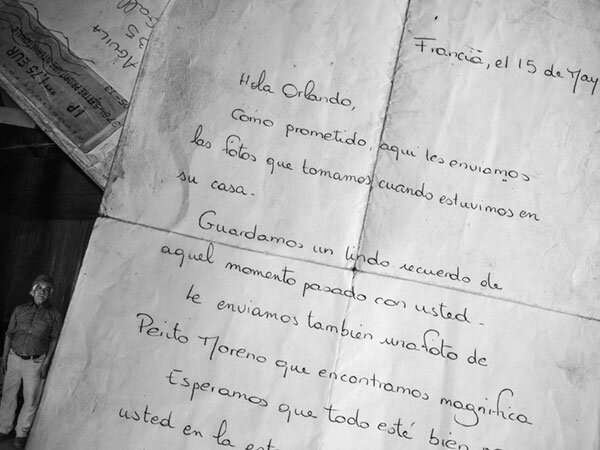 Francia, el 15 de May
Hola Orlando,
como prometido, aqui les enviamos
las fotos que tomamos cuando estuvimos en
su casa.
Guardamos un lindo recuerdo de
aquel momento pasado con usted.
le enviamos también una foto de
Perito Moreno que encontramos magnifica
Esperamos que todo esté bien
usted en la
AGUILA
35
1,75 EUR
LP